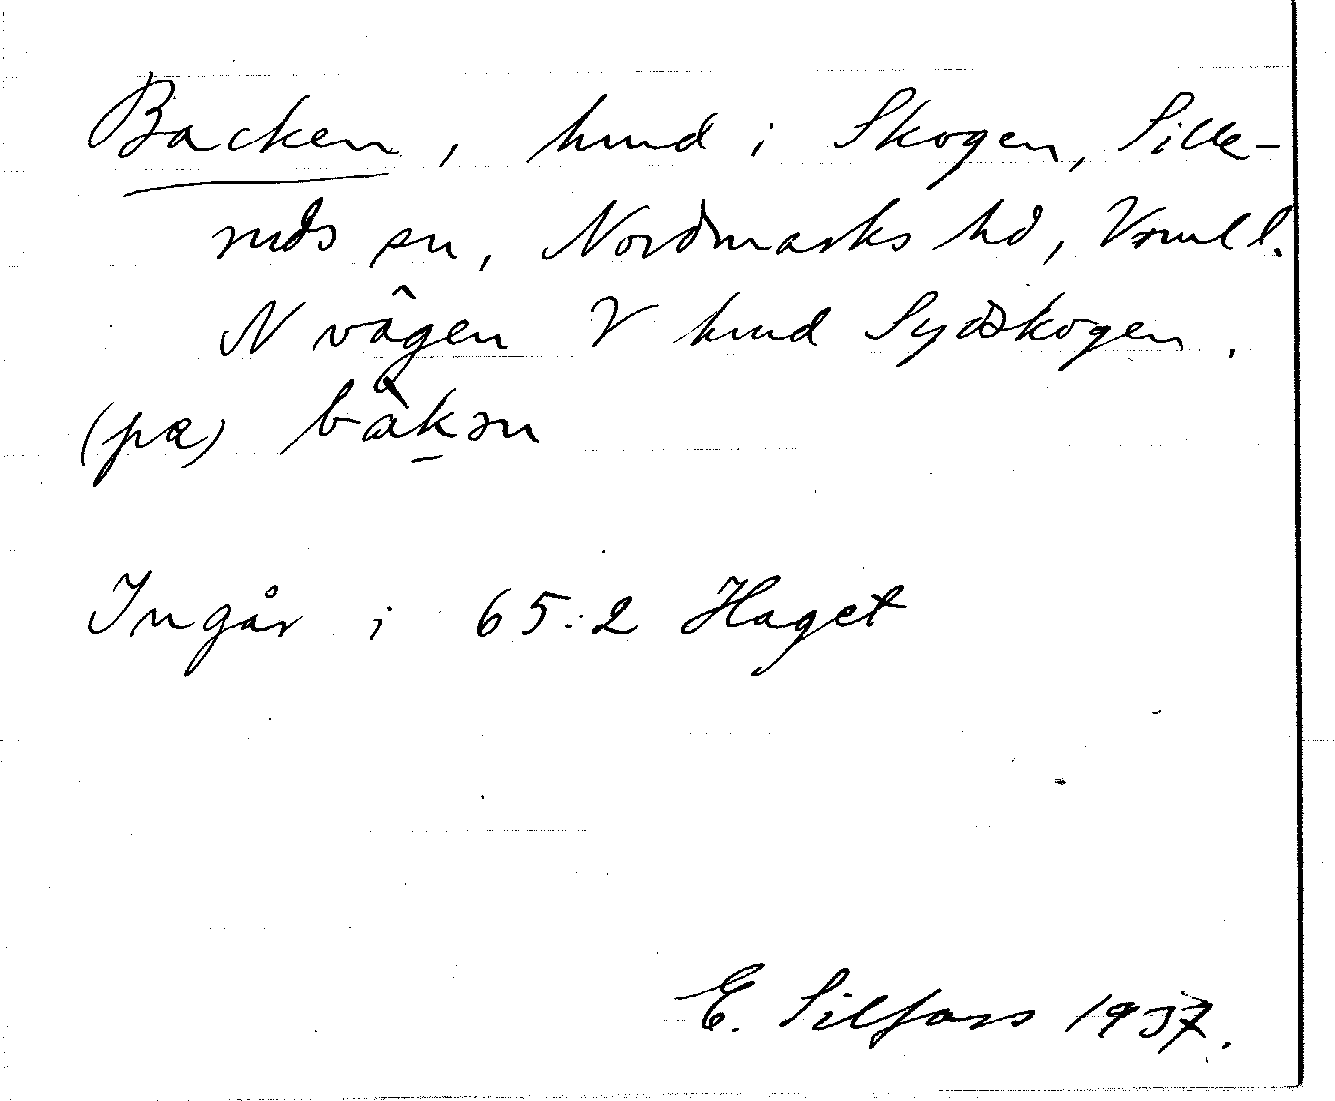 Backen, hmd i Skogen, Sille-
ruds sn, Nordmarks hd, Vrml l.
N vägen V hmd Sydskogen.
(pa)
Ingår i 65:2 Haget
E. Silfors 1937.